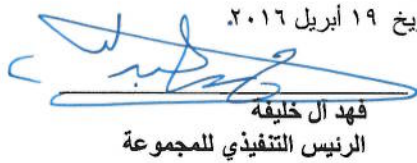 يخ ١٩ أبريل ٢٠١٦.
فهد آل خليفة
الرئيس التنفيذي للمجموعة